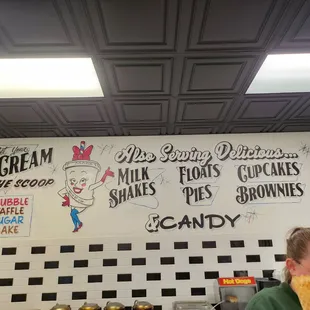 CREAM
THE SCOOP
BUBBLE
WAFFLE
SUGAR
CAKE
Also Serving Delicious...
MILK
SHAKES
FLOATS
PIES
CUPCAKES
BROWNIES
& CANDY